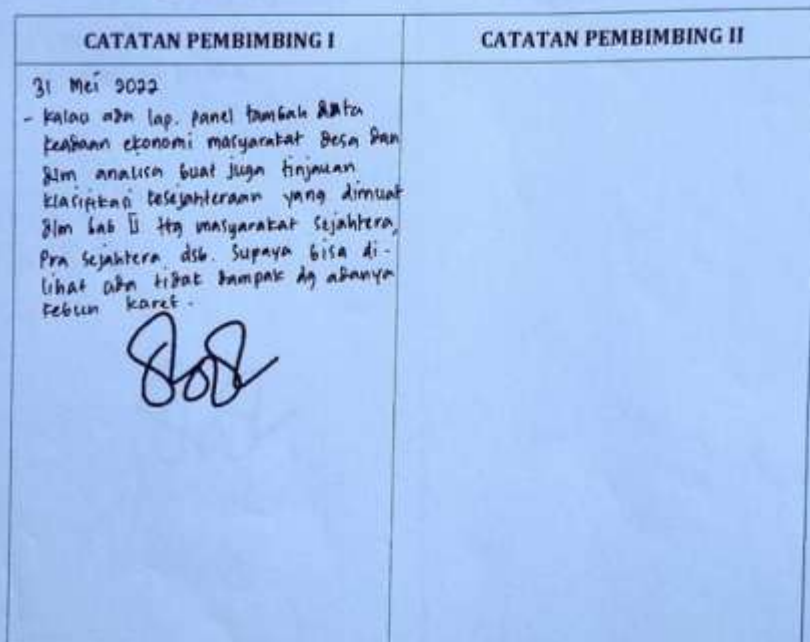 CATATAN PEMBIMBING I
CATATAN PEMBIMBING II
31 Mei 2022
- Kalao adn lap. panel tambah data
keadaan ekonomi masyarakat desa dan
dlm analisa buat juga tinjauan
klasifikasi kesejahteraan yang dimuat
dlm bab II ttg masyarakat sejahtera,
Pra sejahtera dsb. Supaya bisa di-
lihat adn tidak dampak dg adanya
kebun karet.